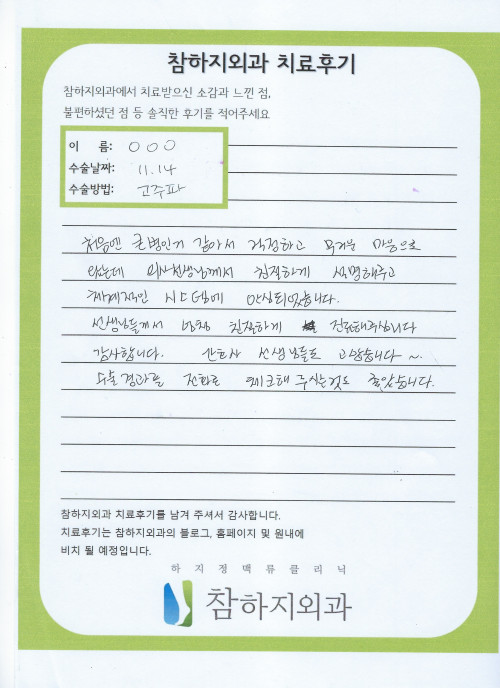 참하지외과 치료후기
참하지외과에서 치료받으신 소감과 느낀 점,
불편하셨던 점 등 솔직한 후기를 적어주세요
이 름: ○○○
수술날짜: 11.14
수술방법: 고주파
처음엔 큰병인거 같아서 걱정하고 무거운 마음으로
왔는데 의사선생님께서 친절하게 설명해주고
체계적인 시스템에 안심되었습니다.
선생님들께서 엄청 친절하게 진료해주십니다
감사합니다. 간호사 선생님들도 고맙습니다~.
수술경과를 전화로 체크해 주시는것도 좋았습니다.
참하지외과 치료후기를 남겨 주셔서 감사합니다.
치료후기는 참하지외과의 블로그, 홈페이지 및 원내에
비치 될 예정입니다.
하지정맥류클리닉
참하지외과